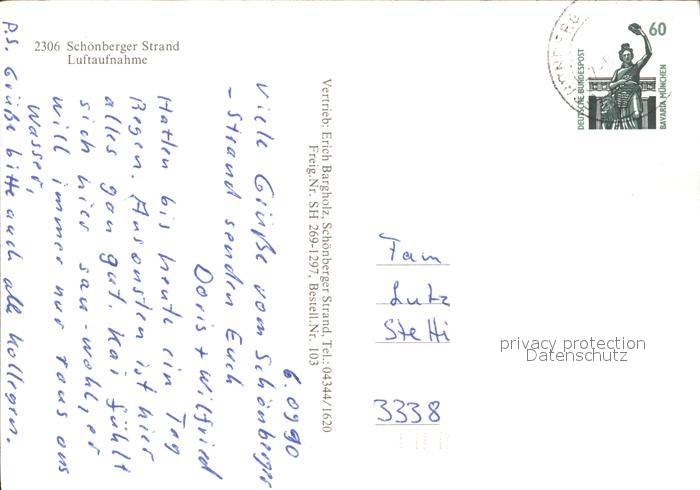 2306 Schönberger Strand
Luftaufnahme
6.0990
Viele Grüße vom Schönberger
- Strand senden Euch
Doris + Wilfried
Hatten bis heute ein Tag
Regen. Ansonsten ist hier
alles gan gut. Kai fühlt
sich hier sau-wohl, er
will immer nur raus ans
Wasser,
P.S. Grüße bitte auch alle Kollegen.
Vertrieb: Erich Bargholz, Schönberger Strand, Tel.: 04344/1620
Freig.Nr. SH 269-1297, Bestell.Nr. 103
60
DEUTSCHE BUNDESPOST
BAVARIA MÜNCHEN
Fam
Lutz
3338
privacy protection
Datenschutz